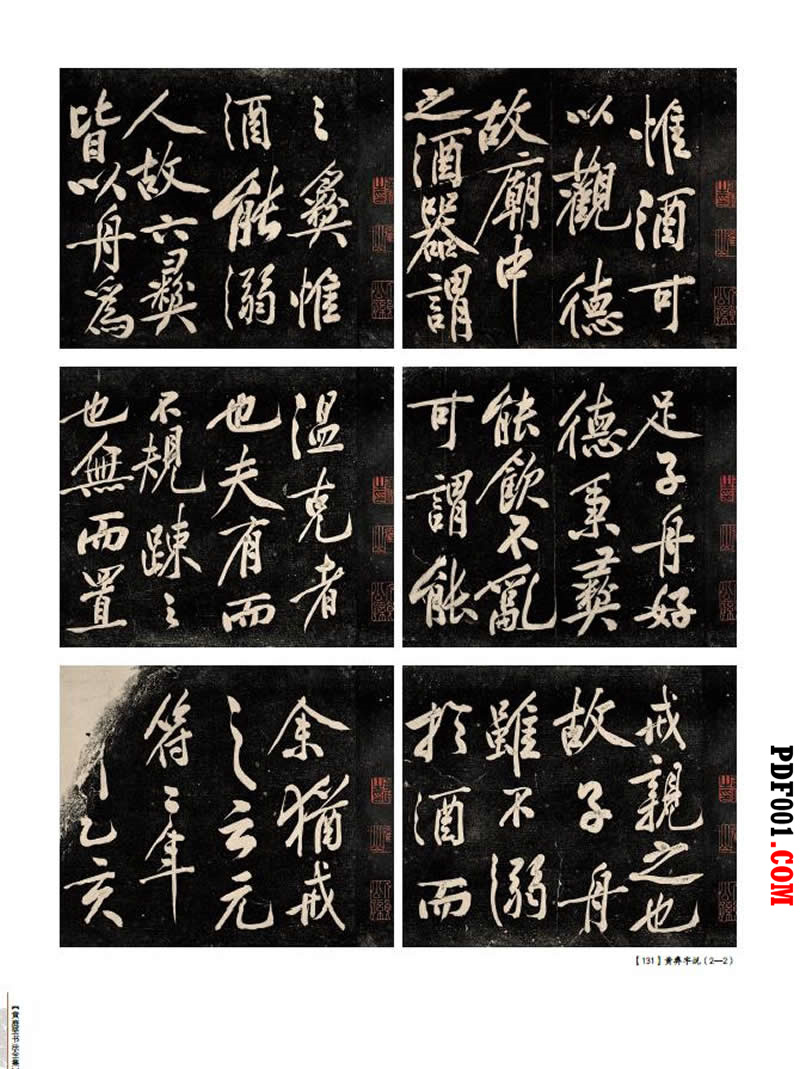 惟酒可
以觀德
故廟中
之酒器謂
之彞惟
酒能溺
人故六彞
皆以舟爲
足子舟好
德秉彞
能飲不亂
可謂能
温克者
也夫有而
不規踈之
也無而置
戒親之也
故子舟
雖不溺
於酒而
余猶戒
之云元
符二年
乙亥
【131】黄彝字说（2—2）
PDF001.COM